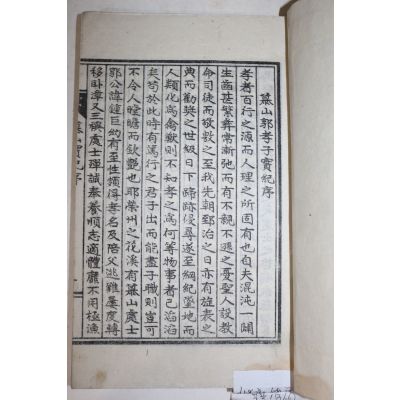 慕山郭孝子實紀序
孝者百行之源而人理之所固有也自夫混沌一闢
生齒甚繁彛常漸弛而有不親不遜之憂聖人設敎
命司徒而敬敷之至我先朝郅治之日亦有旌表之
典而勸奬之世級日下蹄跡侵尋遂至綱紀墜地而
人類化爲禽獸則不知孝之爲何等物事者已滔滔
矣苟於此時有篤行之君子出而能盡子職則豈可
不令人瞠瞻而欽歎也耶榮州之花溪有慕山處士
郭公諱鐘巨約有至性領得孝名及陪父逃難屢度轉
移卧潭又三機處士殫誠奏養順志適體靡不用極漁
慕山實紀序
一